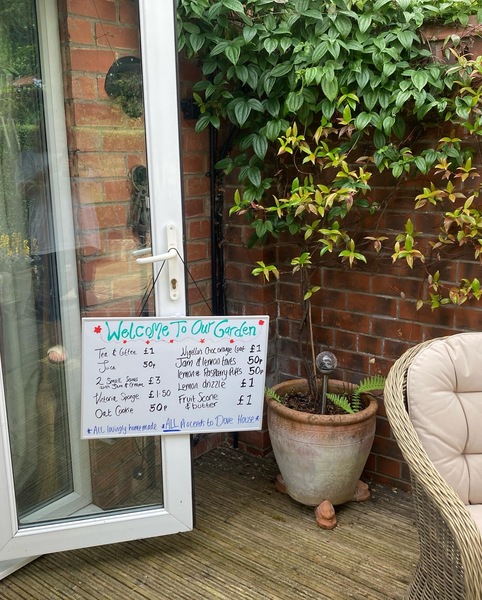 Welcome To Our Garden
Tea & Coffee £1
Juice 50p
2 Small Scones £3
with Jam & Cream
Victoria Sponge £1·50
Oat Cookie 50p
Nigella's Choc orange Loaf £1
Jam & lemon tarts 50p
lemon & Raspberry Puffs 50p
Lemon drizzle £1
Fruit Scone £1
& butter
*ALL lovingly homemade *ALL Proceeds to Dove House